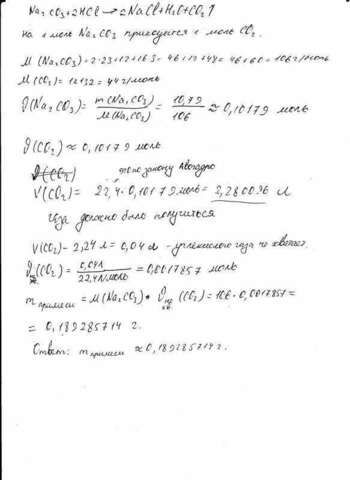 Na₂CO₃+2HCl → 2NaCl+H₂O+CO₂↑
на 1 моль Na₂CO₃ приходится 1 моль CO₂.
M(Na₂CO₃)=2·23+12+16·3=46+12+48=46+60=106 г/моль
M(CO₂)=12+32=44 г/моль
ϑ(Na₂CO₃)= m(Na₂CO₃)/M(Na₂CO₃) = 10,79/106 ≈ 0,10179 моль
ϑ(CO₂) ≈ 0,10179 моль
по закону Авогадро
V(CO₂)= 22,4·0,10179 моль = 2,280096 л
газа должно было получиться
V(CO₂)-2,24 л=0,04 л - углекислого газа не хватает.
ϑ (CO₂)= 0,04л/22,4 л/моль =0,0017857 моль
m примеси = M(Na₂CO₃)·ϑ (CO₂)=106·0,0017857=
= 0,189285714 г.
Ответ: m примеси ≈0,189285714г.